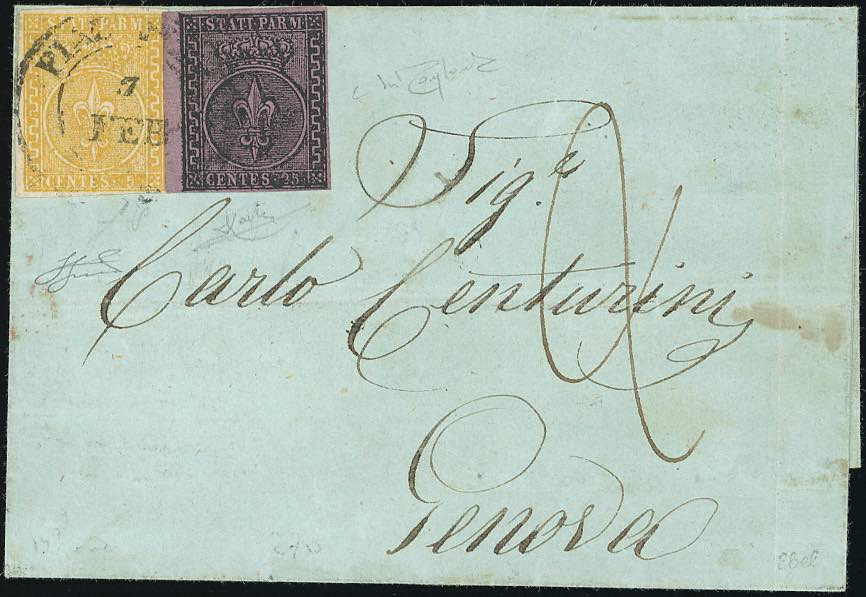 STATI PARM
STATI PARM
7
FEB
CENTES. 5
CENTES. 25
Sig.r
Carlo Centurini
Genova